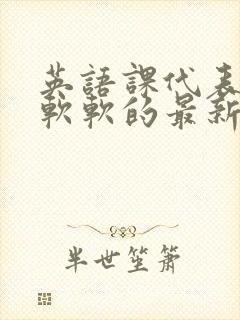 英語課代表
軟軟的最新
半世笙簫